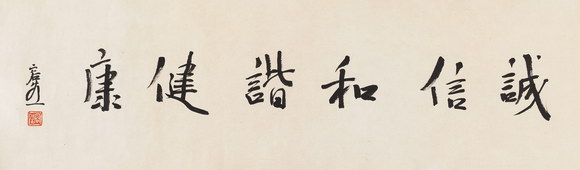 誠信和諧健康